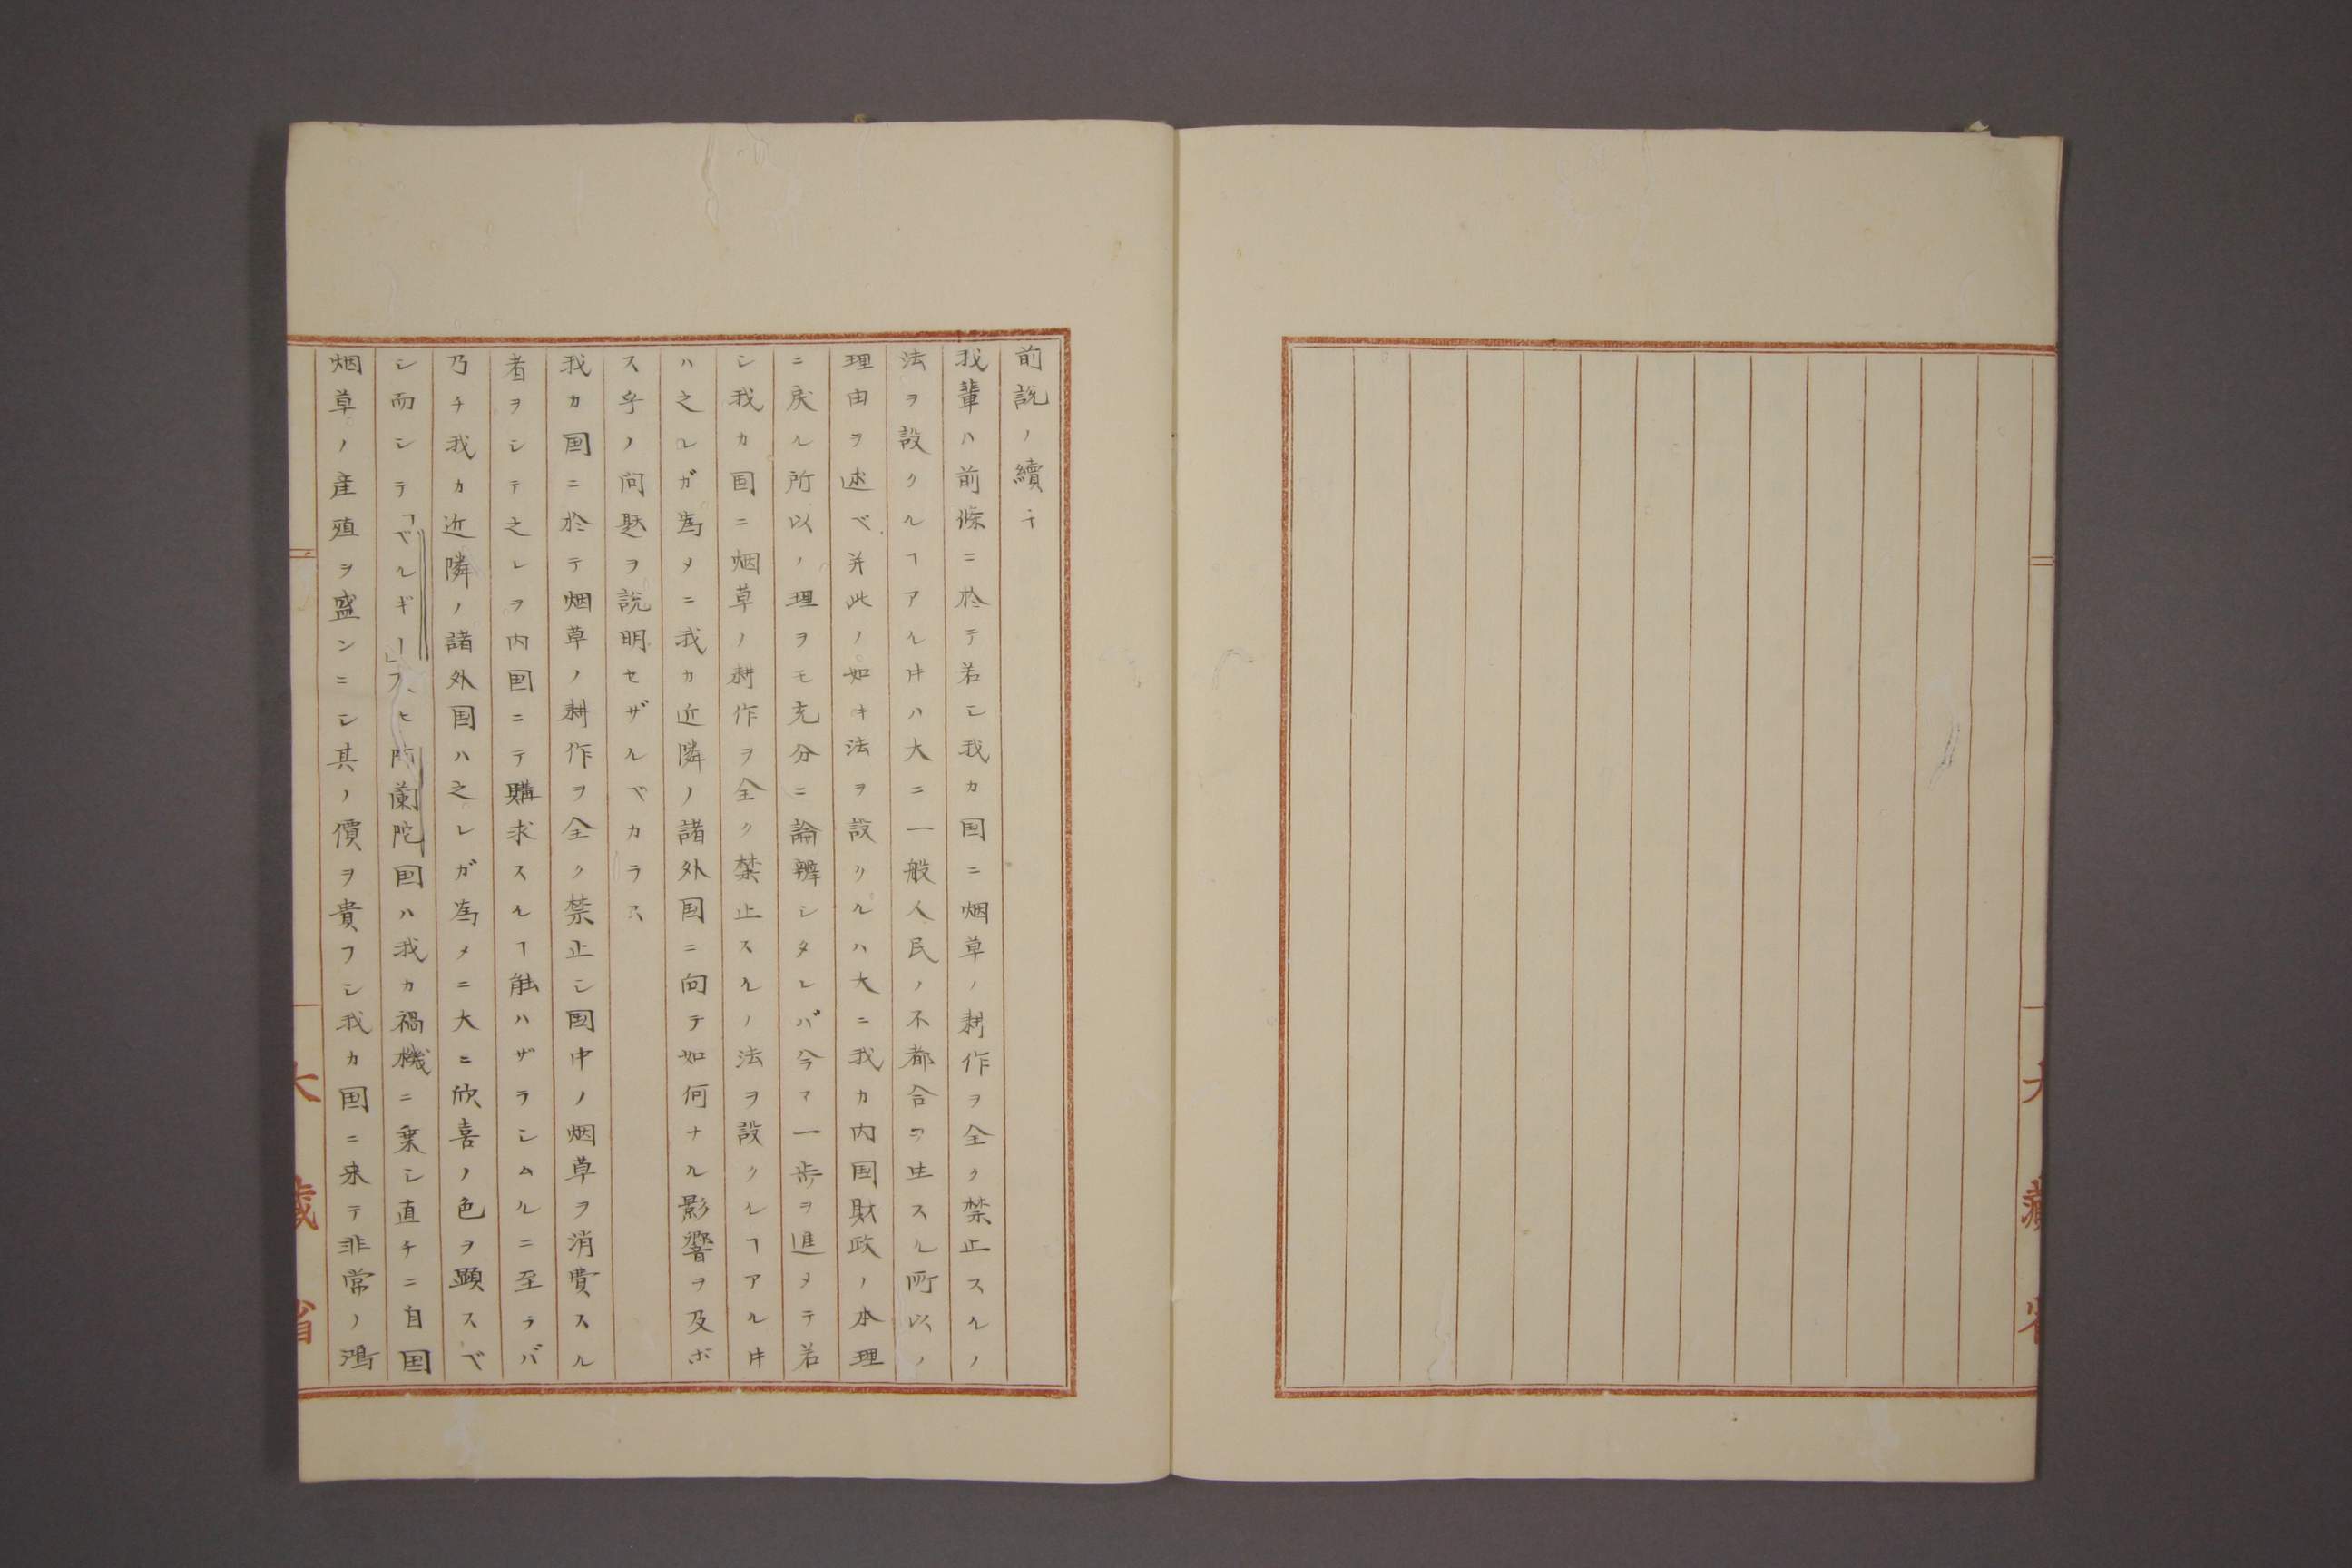 大藏省
前説ノ續キ
我輩ハ前條ニ於テ若シ我カ国ニ烟草ノ耕作ヲ全ク禁止スルノ
法ヲ設クルヿアル𪜈ハ大ニ一般人民ノ不都合ヲ生スル所以ノ
理由ヲ述ベ并此ノ如キ法ヲ設クルハ大ニ我カ内国財政ノ本理
ニ戻ル所以ノ理ヲモ充分ニ論辨シタレバ今マ一歩ヲ進メテ若
シ我カ国ニ烟草ノ耕作ヲ全ク禁止スルノ法ヲ設クルヿアル𪜈
ハ之レガ為メニ我カ近隣ノ諸外国ニ向テ如何ナル影響ヲ及ボ
ス乎ノ問題ヲ説明セザルベカラス
我カ国ニ於テ烟草ノ耕作ヲ全ク禁止シ国中ノ烟草ヲ消費スル
者ヲシテ之レヲ内国ニテ購求スルヿ能ハザラシムルニ至ラバ
乃チ我カ近隣ノ諸外国ハ之レガ為メニ大ニ欣喜ノ色ヲ顕スベ
シ而シテ「ベルギー」及ヒ阿蘭陀国ハ我カ禍機ニ乗シ直チニ自国
烟草ノ産殖ヲ盛ンニシ其ノ價ヲ貴フシ我カ国ニ来テ非常ノ鴻
大藏省